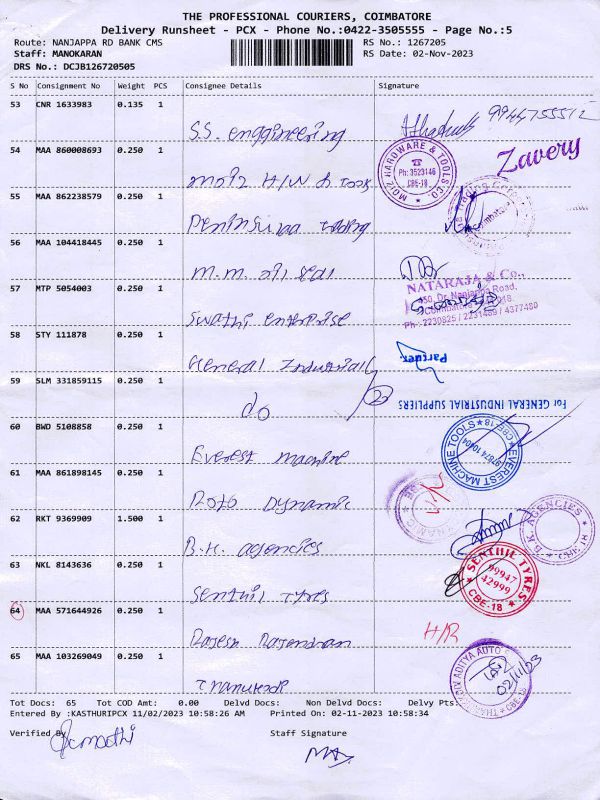 THE PROFESSIONAL COURIERS, COIMBATORE
Delivery Runsheet - PCX - Phone No.:0422-3505555 - Page No.:5
Route: NANJAPPA RD BANK CMS RS No.: 1267205
Staff: MANOKARAN RS Date: 02-Nov-2023
DRS No.: DCJB126720505
S No Consignment No Weight PCS Consignee Details Signature
53 CNR 1633983 0.135 1
S.S. enggineering
54 MAA 860008693 0.250 1
MOIZ HARDWARE & TOOLS CO.
Ph: 3523146
CBE-18
Zavery
moiz H/W & Tools
55 MAA 862238579 0.250 1
Peninsulaa Trading
56 MAA 104418445 0.250 1
m.m. oil seal
57 MTP 5054003 0.250 1
NATARAJA & Co.,
450, Dr. Nanjappa Road,
Coimbatore - 641 018.
Ph : 2230825 / 2231469 / 4377480
Swathi enterprise
58 STY 111878 0.250 1
Partner
General Industrial
59 SLM 331859115 0.250 1
For GENERAL INDUSTRIAL SUPPLIERS
do
60 BWD 5108858 0.250 1
EVEREST MACHINE TOOLS
CBE-18
Everest machine
61 MAA 861898145 0.250 1
Roto Dynamic
62 RKT 9369909 1.500 1
B.K. AGENCIES
B.K. agencies
63 NKL 8143636 0.250 1
SENTHIL TYRES
99947
42999
CBE-18
Senthil Tyres
64 MAA 571644926 0.250 1
H/R
Rajesh Rajendran
65 MAA 103269049 0.250 1
ADITYA AUTO
02/11/23
CBE-18
Tot Docs: 65 Tot COD Amt: 0.00 Delvd Docs: Non Delvd Docs: Delvy Pts:
Entered By :KASTHURIPCX 11/02/2023 10:58:26 AM Printed On :02-11-2023 10:58:34
Verified By Staff Signature